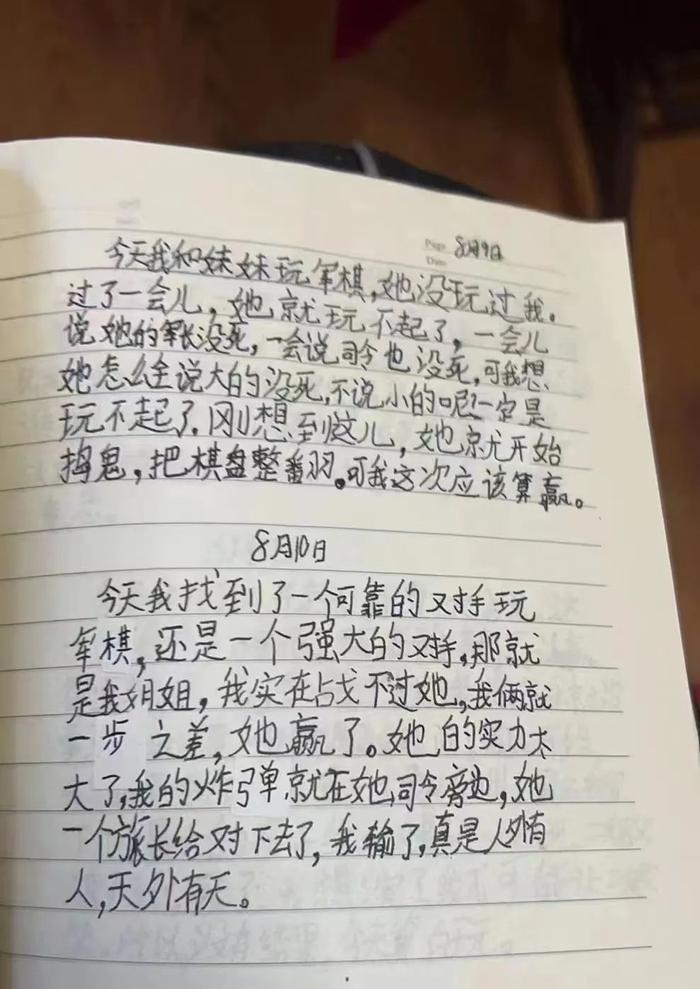 Page
8月9日
Date
今天我和妹妹玩军棋,她没玩过我。
过了一会儿,她就玩不起了,一会儿
说她的军长没死,一会说司令也没死,可我想
她怎么全说大的没死,不说小的呢一定是
玩不起了。刚想到这儿,她就开始
捣鬼,把棋盘整番羽。可我这次应该算赢。
8月10日
今天我找到了一个可靠的对手玩
军棋,还是一个强大的对手,那就
是我姐姐,我实在战不过她,我俩就
一步之差,她赢了。她的实力太
大了,我的炸弹就在她司令旁边,她
一个旅长给对下去了,我输了,真是人外有
人,天外有天。